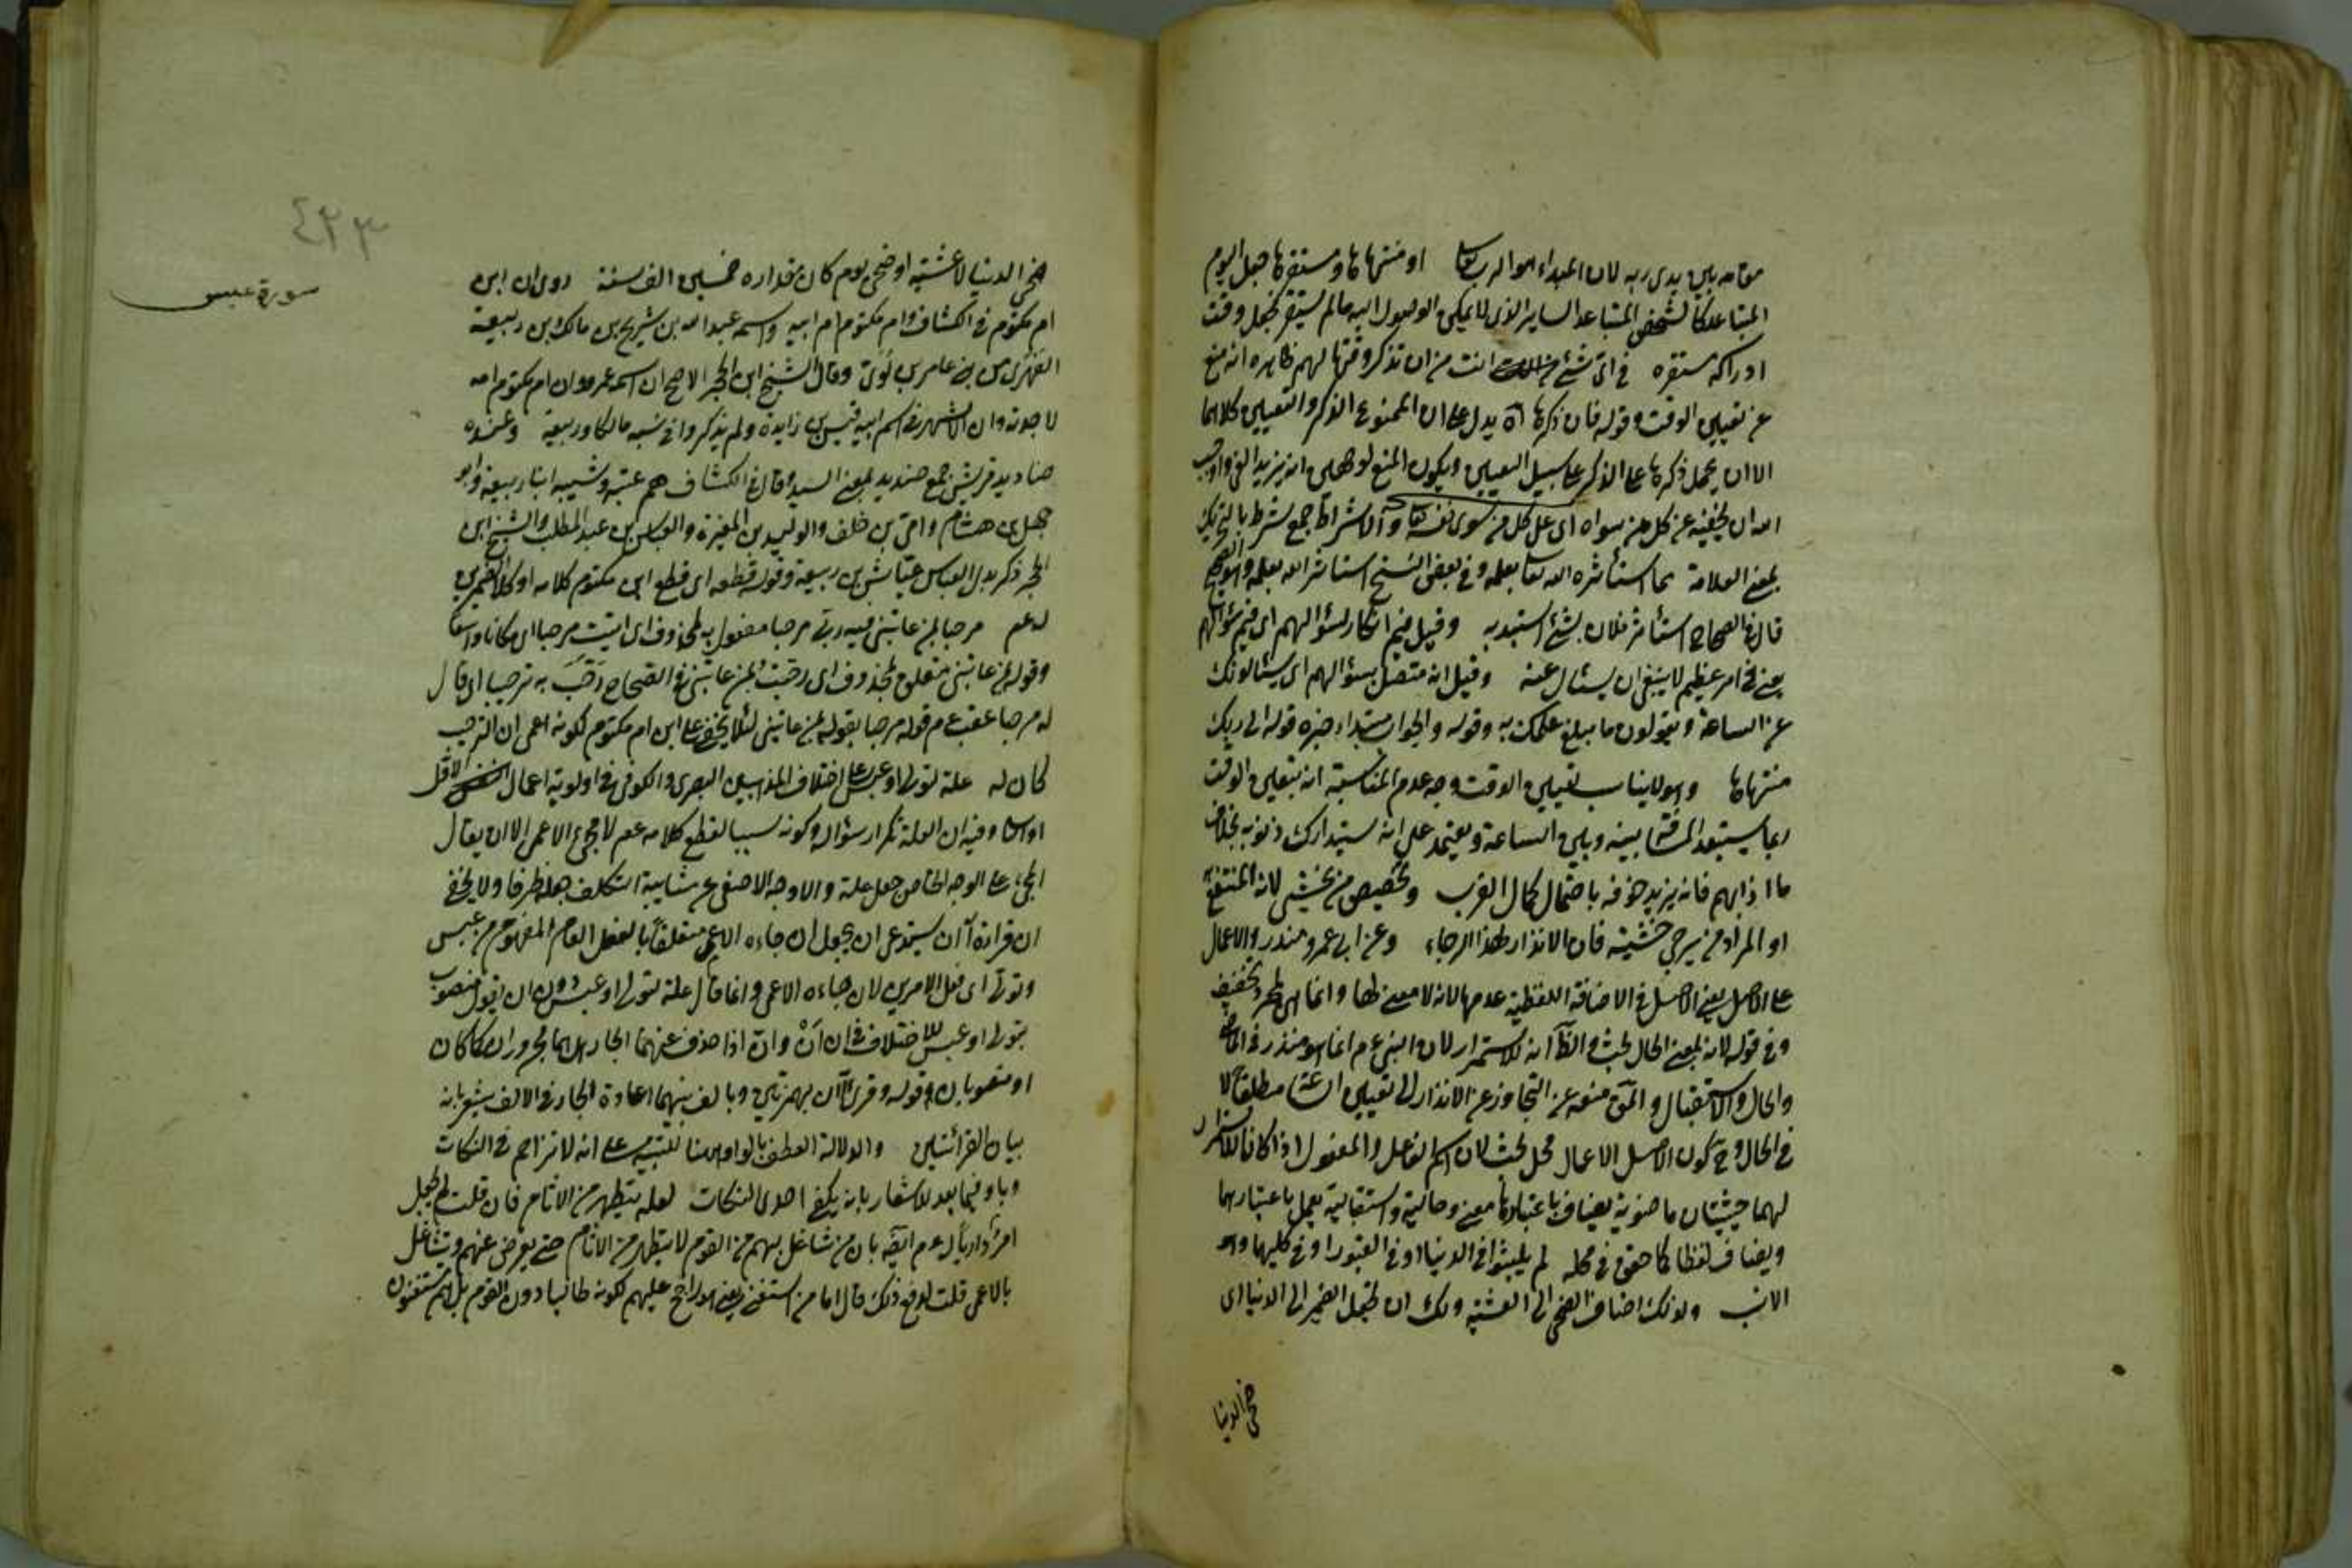 مقامه بين يدى ربه لان المبداء هو الرب تعالى او منتهاها ومستقرها جعل اليوم
المتباعد كالشخص المتباعد الساير الذى لا يمكن الوصول اليه ما لم يستقر فجعل وقت
ادراكه مستقره فى اى شئ انت من ان تذكر وقتها لهم ظاهره انه منع
عن تعيين الوقت وقوله فان ذكرها اه يدل على ان الممنوع الذكر والتعيين كلاهما
الا ان يحمل ذكرها على الذكر على سبيل التعيين ويكون المنع
الله ان يخفيه عن كل من سواه اى على كل من سوى نفسه والاشراط جمع شرط بالتحريك
بمعنى العلامة مما استأثره الله تعالى بعلمه وفى بعض النسخ استاثر الله بعلمه وهو الصحيح
قال فى الصحاح استأثر فلان بشئ استبد به وقيل فيم انكار لسؤالهم اى فيم سؤالهم
يعنى فى امر عظيم لا ينبغى ان يسئال عنه وقيل انه متصل بسؤالهم اى يسئالونك
عن الساعة ويقولون ما مبلغ علمك به وقوله والجواب مبتداء خبره قوله الى ربك
منتهاها وهو لا يناسب تعيين الوقت وجه عدم المناسبة ان بتعيين الوقت
ربما يستبعد المسافة بينه وبين الساعة ويعتمد على انه سيتدارك ذنوبه بخلاف
ما اذا ابهم فانه يزيد خوفه باحتمال كمال القرب وتخصيص من يخشى لانه المنتفع به
او المراد من يرجى خشيته فان الانذار لهذا الرجاء وعن ابى عمرو منذر والاعمال
على الاصل يعنى الاصل فى الاضافة اللفظية عدمها لانه لا معنى لها وانما هى لمجرد تخفيف
وفى قوله لانه بمعنى الحال بحث والظ انه للاستمرار لان النبى عم انما هو منذر فى الماضى
والحال والاستقبال والمق منعه عن التجاوز عن الانذار الى تعيين الساعة مطلقا لا
فى الحال وح كون الاصل الاعمال محل بحث لان اسم الفاعل والمفعول اذا كانا للاستمرار
لهما حيثيتان ماضوية يضاف باعتبارها معنى وحالية واستقبالية يعمل باعتبارهما
ويضاف لفظا كما حقق فى محله لم يلبثوا فى الدنيا او فى القبور او فى كليهما وهو
الانسب ولذلك اضاف الضحى الى العشية ولك ان تجعل الضمير الى الدنيا اى
ضحى الدنيا
٤٢٣
سورة عبس
ضحى الدنيا لا عشية او ضحى يوم كان مقداره خمسين الف سنة روى ان ابن
ام مكتوم فى الكشاف وام مكتوم ام ابيه واسمه عبد الله بن شريح بن مالك بن ربيعة
الفهرى من بنى عامر بن لؤى وقال الشيخ ابن الحجر الاصح ان اسمه عمرو وان ام مكتوم امه
لا جدته وان الاشهر فى اسم ابيه قيس بن زايدة ولم يذكروا فى نسبه مالكا وربيعة وعنده
صناديد قريش جمع صنديد بمعنى السيد وقال فى الكشاف هم عتبة وشيبة ابنا ربيعة وابو
جهل بن هشام وامية بن خلف والوليد بن المغيرة والعباس بن عبد المطلب والشيخ ابن
الحجر ذكر بدل العباس عياش بن ربيعة وقوله قطعه اى قطع ابن مكتوم كلامه او كلا الضميرين
له عم مرحبا بمن عاتبنى فيه ربى مرحبا مفعول به لمحذوف اى اتيت مرحبا اى مكانا واسعا
وقوله بمن عاتبنى متعلق بمحذوف اى رحبت بمن عاتبنى فى الصحاح رَحَّبَ به ترحيبا اى قال
له مرحبا عقب عم قوله مرحبا بقوله بمن عاتبنى لئلا يخفى على ابن ام مكتوم لكونه اعمى ان الترحيب
كان له علة لتولى او عبس على اختلاف المذهبين البصرى والكوفى فى اولوية اعمال الاول
او الثانى وفيه ان العلة تكرار سؤاله وكونه سببا لقطع كلامه عم لا مجئ الاعمى الا ان يقال
المجئ على الوجه الخاص جعل علة والاوجه الاصفى عن شايبة التكلف جعله ظرفا ولا يخفى
ان قراءة أان يستدعى ان يجعل ان جاءه الاعمى متعلقا بالفعل العام المفهوم من عبس
وتولى اى فعل الامرين لان جاءه الاعمى وانما قال علة لتولى او عبس دون ان يقول منصوب
بتولى او عبس للاختلاف فى ان أنْ وانّ اذا حذف عنهما الجار هل هما مجروران كما كان
او منصوبان وقوله وقرئ أان بهمزتين وبالف بينهما اعادة الجار فى الالف يشعر بانه
بيان القرائتين والدلالة العطف بالواو ههنا للتنبيه على انه لا تزاحم فى النكات
وباو فيما بعد للاشعار بانه يكفى احدى النكات لعله يتطهر من الاثام فان قلت لم لم يجعل
بان من شاغل بهم من القوم لا يتطهر من الاثام حتى يعرض عنهم ويتشاغل
بالاعمى قلت لدفع ذلك قال اما من استغنى يعنى هو راجح عليهم لكونه طالبا دون القوم بل هم مستغنون